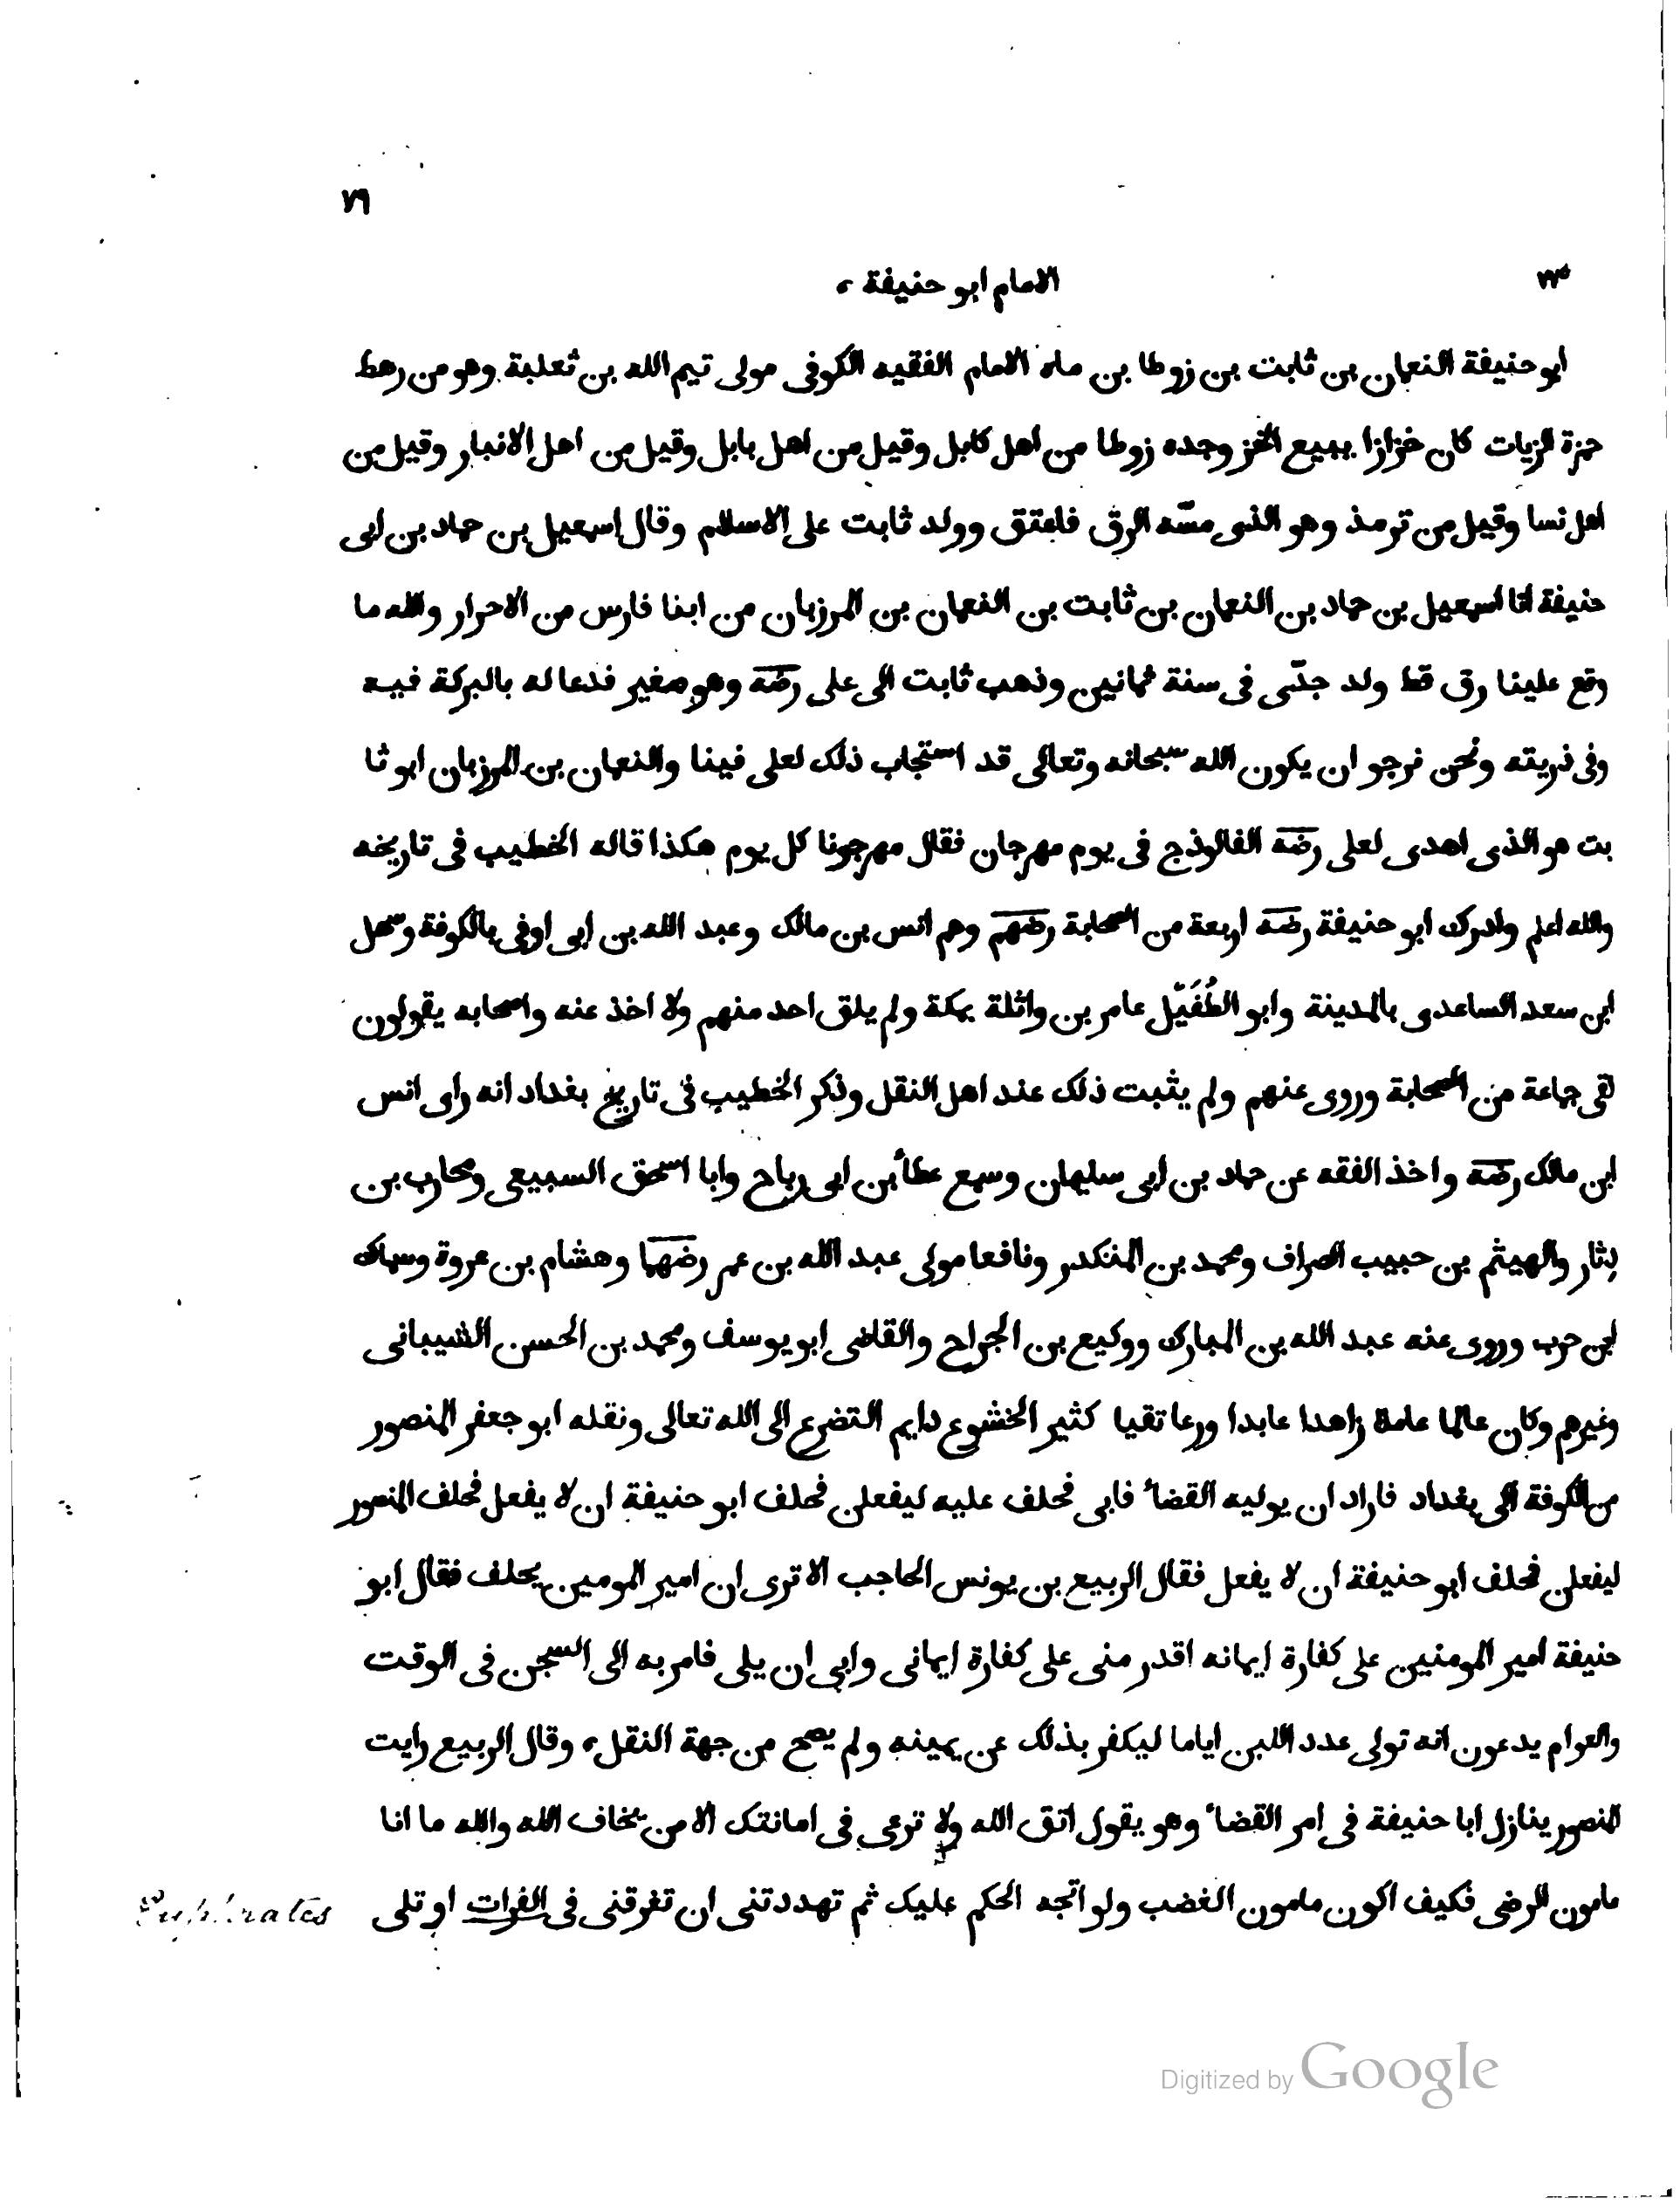 ٧٦
الامام ابو حنيفة ،
ابو حنيفة النعمان بن ثابت بن زوطا بن ماه الامام الفقيه الكوفى مولى تيم الله بن ثعلبة وهو من رهط
حمزة الزيات كان خزازا يبيع الخز وجده زوطا من اهل كابل وقيل من اهل بابل وقيل من اهل الانبار وقيل من
اهل نسا وقيل من ترمذ وهو الذى مسّه الرق فاعتق وولد ثابت على الاسلام وقال اسمعيل بن حماد بن ابى
حنيفة انا اسمعيل بن حماد بن النعمان بن ثابت بن النعمان بن المرزبان من ابنا فارس من الاحرار والله ما
وقع علينا رق قط ولد جدّى فى سنة ثمانين وذهب ثابت الى على رضه وهو صغير فدعا له بالبركة فيه
وفى ذريته ونحن نرجو ان يكون الله سبحانه وتعالى قد استجاب ذلك لعلى فينا والنعمان بن المرزبان ابو ثا
بت هو الذى اهدى لعلى رضه الفالوذج فى يوم مهرجان فقال مهرجونا كل يوم هكذا قاله الخطيب فى تاريخه
والله اعلم وادرك ابو حنيفة رضه اربعة من الصحابة رضهم وهم انس بن مالك وعبد الله بن ابى اوفى بالكوفة وسهل
ابن سعد الساعدى بالمدينة وابو الطُفَيّل عامر بن واثلة بمكة ولم يلق احد منهم ولا اخذ عنه واصحابه يقولون
لقى جماعة من الصحابة وروى عنهم ولم يثبت ذلك عند اهل النقل وذكر الخطيب فى تاريخ بغداد انه راى انس
ابن مالك رضه واخذ الفقه عن حماد بن ابى سليمان وسمع عطأ بن ابى رباح وابا اسحق السبيعى ومحارب بن
دثار والهيثم بن حبيب الصراف ومحمد بن المنكدر ونافعا مولى عبد الله بن عمر رضهما وهشام بن عروة وسماك
ابن حرب وروى عنه عبد الله بن المبارك ووكيع بن الجراح والقاضى ابو يوسف ومحمد بن الحسن الشيبانى
وغيرهم وكان عالما عاملا زاهدا عابدا ورعا تقيا كثير الخشوع دايم التضرع الى الله تعالى ونقله ابو جعفر المنصور
من الكوفة الى بغداد فاراد ان يوليه القضأ فابى فحلف عليه ليفعلن فحلف ابو حنيفة ان لا يفعل فحلف المنصور
ليفعلن فحلف ابو حنيفة ان لا يفعل فقال الربيع بن يونس الحاجب الا ترى ان امير المومين يحلف فقال ابو
حنيفة امير المومنين على كفارة ايمانه اقدر منى على كفارة ايمانى وابى ان يلى فامر به الى السجن فى الوقت
والعوام يدعون انه تولى عدد اللبن اياما ليكفر بذلك عن يمينه ولم يصح من جهة النقل ، وقال الربيع رايت
المنصور ينازل ابا حنيفة فى امر القضأ وهو يقول اتق الله ولا ترعى فى امانتك الا من يخاف الله والله ما انا
مامون الرضى فكيف اكون مامون الغضب ولو اتجه الحكم عليك ثم تهددتنى ان تغرقنى فى الفرات او تلى
Euphrates
Digitized by Google